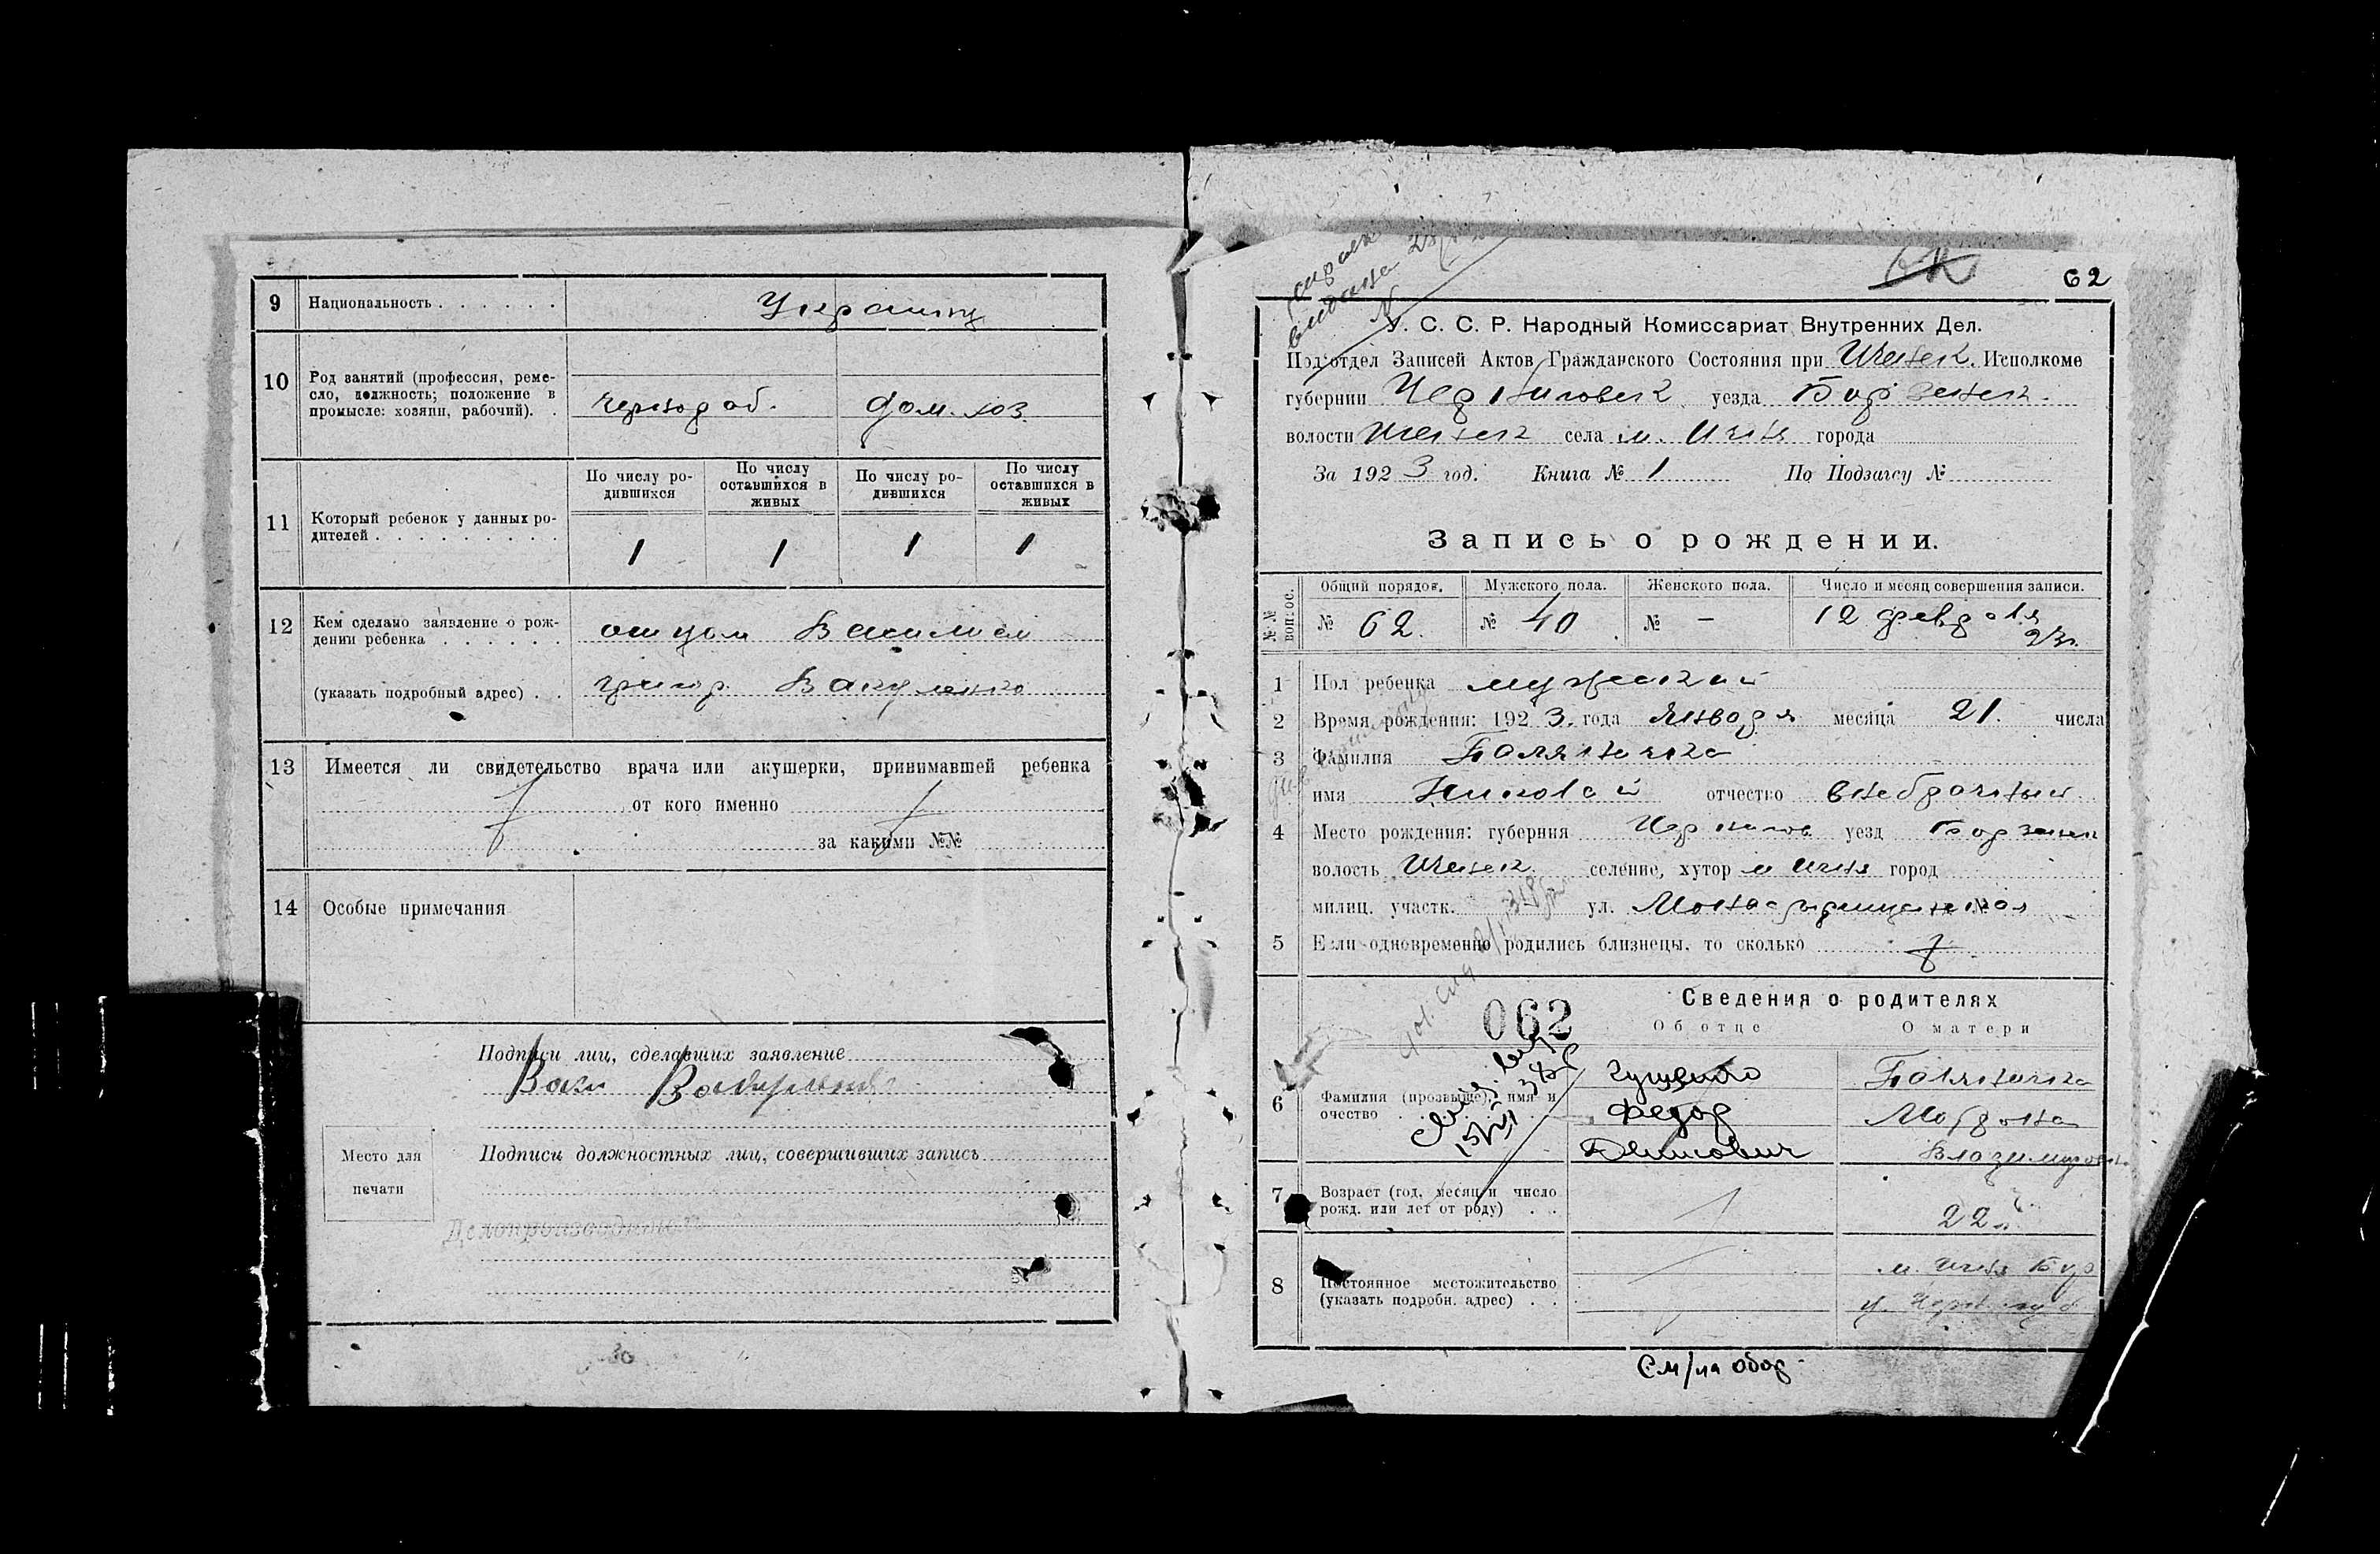 9 Национальность . . . . . . Украинц
10 Род занятий (профессия, реме-
сло, должность; положение в
промысле: хозяин, рабочий). .
чернораб. дом. хоз.
11 Который ребенок у данных ро-
дителей . . . . . . . . .
По числу ро-
дившихся
По числу
оставшихся в
живых
По числу ро-
дившихся
По числу
оставшихся в
живых
1 1 1 1
12 Кем сделано заявление о рож-
дении ребенка . . . . . .
отцом Василием
(указать подробный адрес) . .
григор. Вакуленко
13 Имеется ли свидетельство врача или акушерки, принимавшей ребенка
от кого именно
за какими №№
14 Особые примечания
Подписи лиц, сделавших заявление
Васи Вакуленко
Место для
печати
Подписи должностных лиц, совершивших запись
Делопроизводитель
30
62
У. С. С. Р. Народный Комиссариат Внутренних Дел.
Под'отдел Записей Актов Гражданского Состояния при Ичнск. Исполкоме
губернии Черниговск уезда Борзенск.
волости Ичнск села м. Ичня города
За 1923 год. Книга № 1 По Подзагсу №
Запись о рождении.
№№ вопрос.
Общий порядов. Мужского пола. Женского пола. Число и месяц совершения записи.
№ 62. № 40 № — 12 февраля
23г.
1 Пол ребенка мужеский
2 Время рождения: 1923. года Января месяца 21. числа
3 Фамилия
имя Николай отчество внебрачный
4 Место рождения: губерния Чернигов. уезд Борзенск
волость Ичнск. селение, хутор м Ичня город
милиц. участк. ул. №
5 Если одновременно родились близнецы, то сколько
062
Сведения о родителях
Об отце О матери
6 Фамилия (прозвыще), имя и
очество
Гущенко
Федор
Денисович
Владимировн.
7 Возраст (год, месяц и число
рожд. или лет от роду) . .
22 л.
8 Постоянное местожительство
(указать подробн. адрес) . .
м. Ичня Бор
у. Черн. губ
См/на обор.